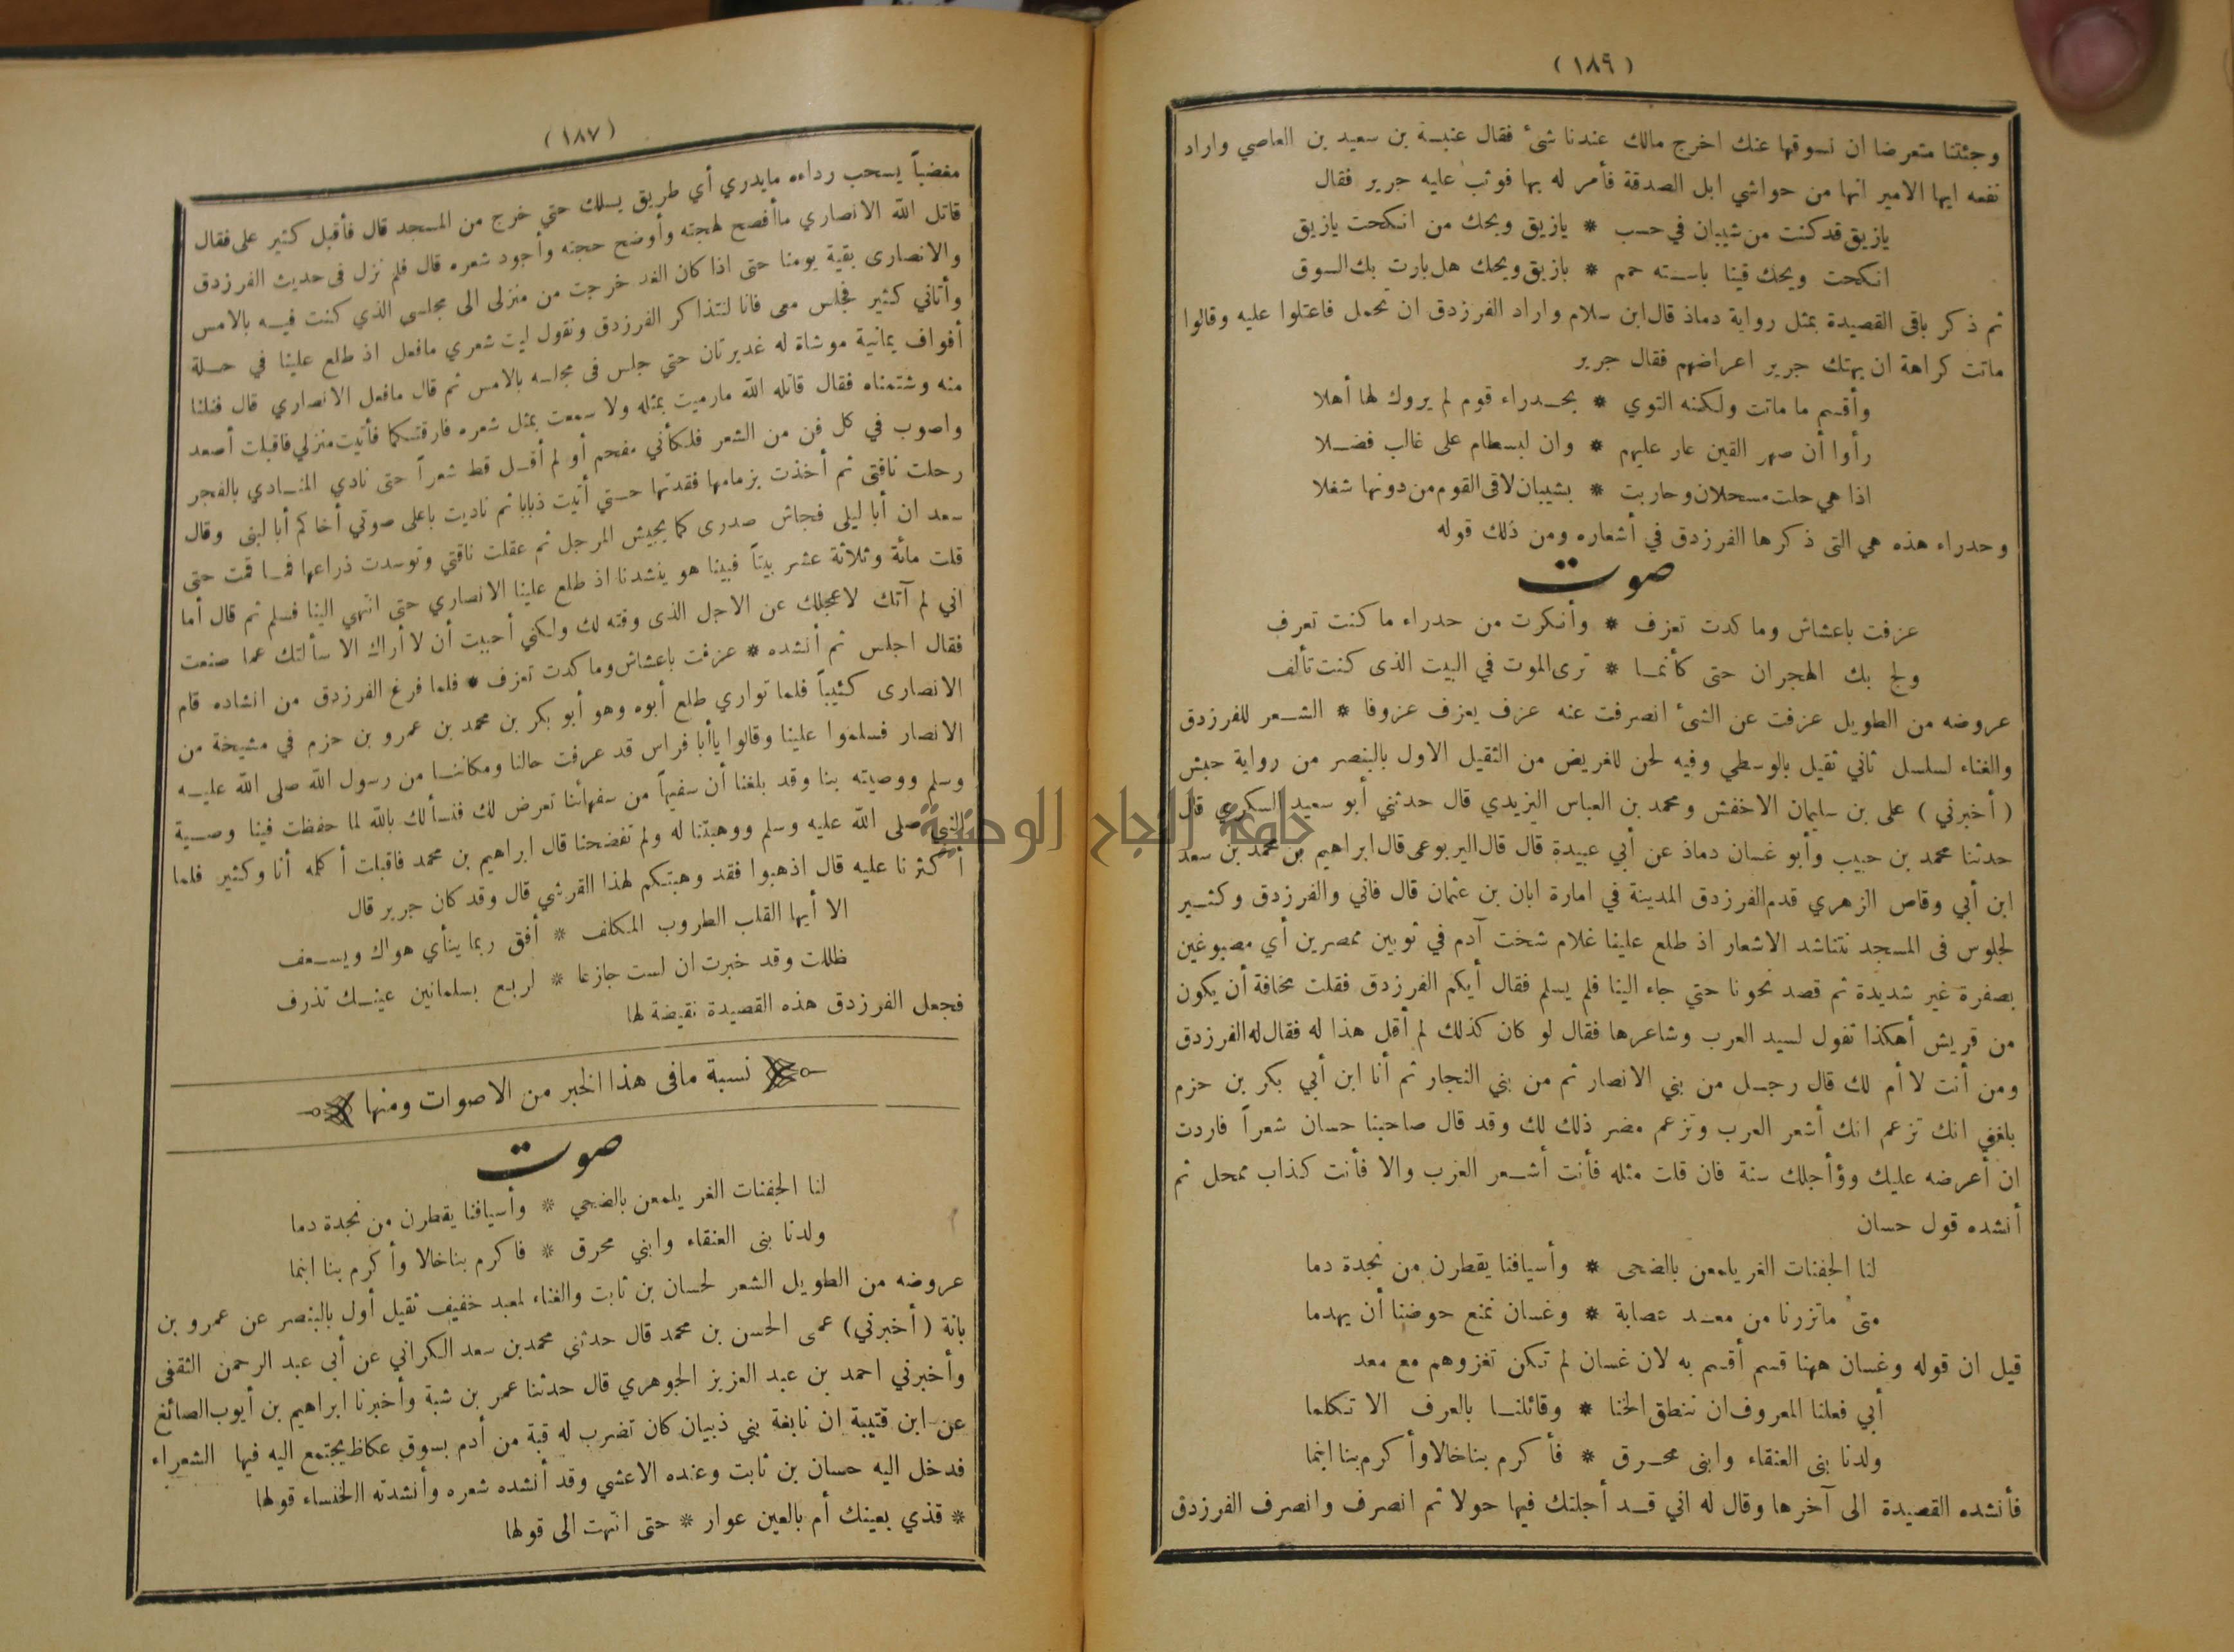 ( ١٨٩ )
وجئتنا متعرضا ان نسوقها عنك اخرج مالك عندنا شئ فقال عنبسة بن سعيد بن العاصي واراد
نفعه ايها الامير انها من حواشي ابل الصدقة فأمر له بها فوثب عليه جرير فقال
يازيق قد كنت من شيبان في حسب * يازيق ويحك من انكحت يازيق
انكحت ويحك قينا باسته حمم * يازيق ويحك هل بارت بك السوق
ثم ذكر باقى القصيدة بمثل رواية دماذ قال ابن سلام واراد الفرزدق ان تحمل فاعتلوا عليه وقالوا
ماتت كراهة ان يهتك جرير اعراضهم فقال جرير
وأقسم ما ماتت ولكنه التوي * بحدراء قوم لم يروك لها أهلا
رأوا أن صهر القين عار عليهم * وان لبسطام على غالب فضلا
اذا هي حلت مسحلان وحاربت * بشيبان لاقى القوم من دونها شغلا
وحدراء هذه هي التى ذكرها الفرزدق في أشعاره ومن ذلك قوله
صوت
عزفت باعشاش وما كدت تعزف * وأنكرت من حدراء ما كنت تعرف
ولج بك الهجران حتى كأنما * ترى الموت في البيت الذى كنت تألف
عروضه من الطويل عزفت عن الشئ انصرفت عنه عزف يعزف عزوفا * الشعر للفرزدق
والغناء لسلسل ثاني ثقيل بالوسطي وفيه لحن للغريض من الثقيل الاول بالبنصر من رواية حبش
( أخبرني ) على بن سليمان الاخفش ومحمد بن العباس اليزيدي قال حدثني أبو سعيد السكري قال
حدثنا محمد بن حبيب وأبو غسان دماذ عن أبي عبيدة قال قال اليربوعى قال ابراهيم بن محمد بن سعد
ابن أبي وقاص الزهري قدم الفرزدق المدينة في امارة ابان بن عثمان قال فاني والفرزدق وكثير
لجلوس فى المسجد نتناشد الاشعار اذ طلع علينا غلام شخت آدم في ثوبين ممصرين أي مصبوغين
بصفرة غير شديدة ثم قصد نحونا حتي جاء الينا فلم يسلم فقال أيكم الفرزدق فقلت مخافة أن يكون
من قريش أهكذا تقول لسيد العرب وشاعرها فقال لو كان كذلك لم أقل هذا له فقال له الفرزدق
ومن أنت لا أم لك قال رجل من بني الانصار ثم من بني النجار ثم أنا ابن أبي بكر بن حزم
بلغني انك تزعم انك أشعر العرب وتزعم مضر ذلك لك وقد قال صاحبنا حسان شعراً فاردت
ان أعرضه عليك وؤأجلك سنة فان قلت مثله فأنت أشعر العرب والا فأنت كذاب ممحل ثم
أنشده قول حسان
لنا الجفنات الغر يلمعن بالضحى * وأسيافنا يقطرن من نجدة دما
متى ماتزرنا من معد عصابة * وغسان نمنع حوضنا أن يهدما
قيل ان قوله وغسان ههنا قسم أقسم به لان غسان لم تكن تغزوهم مع معد
أبي فعلنا المعروف ان ننطق الخنا * وقائلنا بالعرف الا تكلما
ولدنا بنى العنقاء وابنى محرق * فأكرم بنا خالا وأكرم بنا ابنما
فأنشده القصيدة الى آخرها وقال له اني قد أجلتك فيها حولا ثم انصرف وانصرف الفرزدق
( ١٨٧ )
مغضباً يسحب رداءه مايدري أي طريق يسلك حتي خرج من المسجد قال فأقبل كثير على فقال
قاتل الله الانصاري ماأفصح لهجته وأوضح حجته وأجود شعره قال فلم نزل فى حديث الفرزدق
والانصارى بقية يومنا حتى اذا كان الغد خرجت من منزلى الى مجلسي الذي كنت فيه بالامس
وأتاني كثير فجلس معى فانا لنتذاكر الفرزدق ونقول ليت شعري مافعل اذ طلع علينا في حلة
أفواف يمانية موشاة له غديرتان حتي جلس فى مجلسه بالامس ثم قال مافعل الانصاري قال فنلنا
منه وشتمناه فقال قاتله الله مارميت بمثله ولا سمعت بمثل شعره فارقتكما فأتيت منزلي فاقبلت أصعد
واصوب في كل فن من الشعر فلكأني مفحم أو لم أقل قط شعراً حتى نادي المنادي بالفجر
رحلت ناقتى ثم أخذت بزمامها فقدتها حتي أتيت ذبابا ثم ناديت باعلى صوتي أخاكم أبا لبنى وقال
سعد ان أبا ليلى فجاش صدرى كما يجيش المرجل ثم عقلت ناقتي وتوسدت ذراعها فما قمت حتى
قلت مائة وثلاثة عشر بيتاً فبينا هو ينشدنا اذ طلع علينا الانصاري حتى انتهي الينا فسلم ثم قال أما
اني لم آتك لاعجلك عن الاجل الذى وقته لك ولكني أحببت أن لا أراك الا سألتك عما صنعت
فقال اجلس ثم أنشده * عزفت باعشاش وما كدت تعزف * فلما فرغ الفرزدق من انشاده قام
الانصارى كئيباً فلما تواري طلع أبوه وهو أبو بكر بن محمد بن عمرو بن حزم في مشيخة من
الانصار فسلموا علينا وقالوا ياأبا فراس قد عرفت حالنا ومكاننا من رسول الله صلى الله عليه
وسلم ووصيته بنا وقد بلغنا أن سفيهاً من سفهائنا تعرض لك فنسألك بالله لما حفظت فينا وصية
النبي صلى الله عليه وسلم ووهبتنا له ولم تفضحنا قال ابراهيم بن محمد فاقبلت أكلمه أنا وكثير فلما
أكثرنا عليه قال اذهبوا فقد وهبتكم لهذا القرشي قال وقد كان جرير قال
الا أيها القلب الطروب المكلف * أفق ربما ينأي هواك ويسعف
ظللت وقد خبرت ان لست جازعا * لربع بسلمانين عينك تذرف
فجعل الفرزدق هذه القصيدة نقيضة لها
نسبة مافى هذا الخبر من الاصوات ومنها
صوت
لنا الجفنات الغر يلمعن بالضحي * وأسيافنا يقطرن من نجدة دما
ولدنا بنى العنقاء وابني محرق * فاكرم بنا خالا وأكرم بنا ابنما
عروضه من الطويل الشعر لحسان بن ثابت والغناء لمعبد خفيف ثقيل أول بالبنصر عن عمرو بن
بانة ( أخبرني ) عمى الحسن بن محمد قال حدثني محمد بن سعد الكراني عن أبى عبد الرحمن الثقفى
وأخبرني احمد بن عبد العزيز الجوهري قال حدثنا عمر بن شبة وأخبرنا ابراهيم بن أيوب الصائغ
عن ابن قتيبة ان نابغة بني ذبيان كان تضرب له قبة من أدم بسوق عكاظ يجتمع اليه فيها الشعراء
فدخل اليه حسان بن ثابت وعنده الاعشي وقد أنشده شعره وأنشدته الخنساء قولها
* قذي بعينك أم بالعين عوار * حتى انتهت الى قولها
جامعة النجاح الوطنية